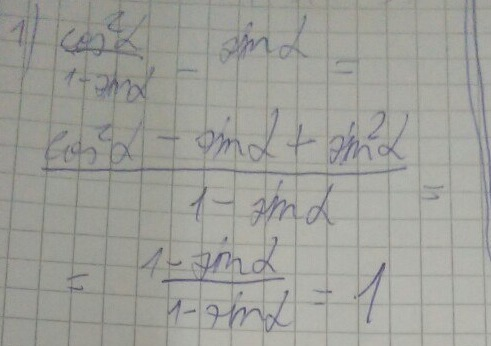 1) cos²α / 1-sinα - sinα =
cos²α - sinα + sin²α / 1 - sinα =
= 1-sinα / 1-sinα = 1